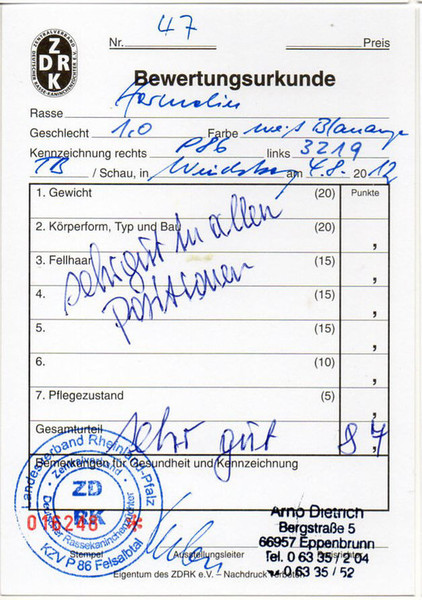 ZENTRALVERBAND DEUTSCHER RASSE-KANINCHENZÜCHTER E.V.
ZDRK
Nr. 47 Preis
Bewertungsurkunde
Rasse Hermelin
Geschlecht 1,0 Farbe weiß Blauauge
Kennzeichnung rechts P86 links 3219
TB / Schau, in am 4.8. 2012
1. Gewicht (20) Punkte
2. Körperform, Typ und Bau (20) ,
3. Fellhaar (15) ,
4. (15) ,
5. (15) ,
6. (10) ,
7. Pflegezustand (5) ,
sehr gut in allen
Positionen
Gesamturteil sehr gut 97
Bemerkungen für Gesundheit und Kennzeichnung
Landesverband Rheinland-Pfalz
Zentralverband
Deutscher Rassekaninchenzüchter
ZD
RK
KZV P 86 Felsalbtal
016248 *
Arno Dietrich
Bergstraße 5
66957 Eppenbrunn
Tel. 0 63 35 / 2 04
0 63 35 / 52
Stempel Ausstellungsleiter Preisrichter
Eigentum des ZDRK e.V. – Nachdruck verboten